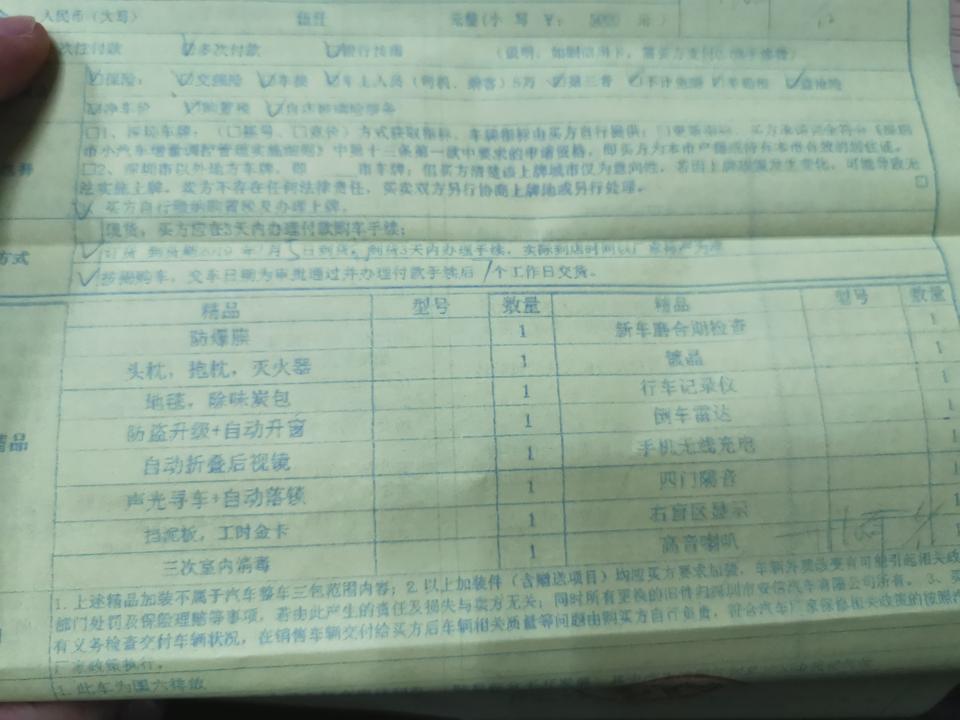 人民币（大写） 伍仟 元整（小 写 ￥： 5000 元）
次性付款 多次付款 银行按揭
保险： 交强险 车损 车上人员（司机、乘客）5万 第三者 不计免赔
净车价 购置税
1、深圳车牌，（摇号、竞价）方式获取指标，车辆指标由买方自行提供；
市小汽车增量调控管理实施细则》中第十三条第一款中要求的申请资格，即买方为本市户籍或持有本市有效的居住证。
2、深圳市以外地方车牌，即 市车牌；但买方清楚该上牌城市仅为意向性，若因上牌政策发生变化，可能导致无
法实施上牌，卖方不存在任何法律责任，买卖双方另行协商上牌地或另行处理。
买方自行缴纳购置税及办理上牌。
现货，买方应在3天内办理付款购车手续；
方式 订货 到货期2019 年 月 5 日到货，到货3天内办理手续，实际到店时间以厂家
按揭购车，交车日期为审批通过并办理付款手续后 1 个工作日交货。
精品 型号 数量 精品 型号 数量
防爆膜 1 新车磨合期检查 1
头枕，抱枕，灭火器 1 镀晶 1
地毯，除味炭包 1 行车记录仪 1
防盗升级+自动开窗 1 倒车雷达 1
精品
自动折叠后视镜 1 手机无线充电 1
声光寻车+自动落锁 1 四门隔音 1
挡泥板，工时金卡 1 右盲区显示 1
三次室内消毒 1 高音喇叭
1. 上述精品加装不属于汽车整车三包范围内容；2. 以上加装件（含赠送项目）均应买方要求加装，车辆外观改变有可能引起相关政
部门处罚及保险理赔等事项，若由此产生的责任及损失与卖方无关；同时所有更换的旧件归深圳市安信汽车有限公司所有。3、买
有义务检查交付车辆状况，在销售车辆交付给买方后车辆相关质量等问题由购买方自行负责，符合汽车厂家保修相关政策的按照汽
厂家政策执行。
1. 此车为国六排放